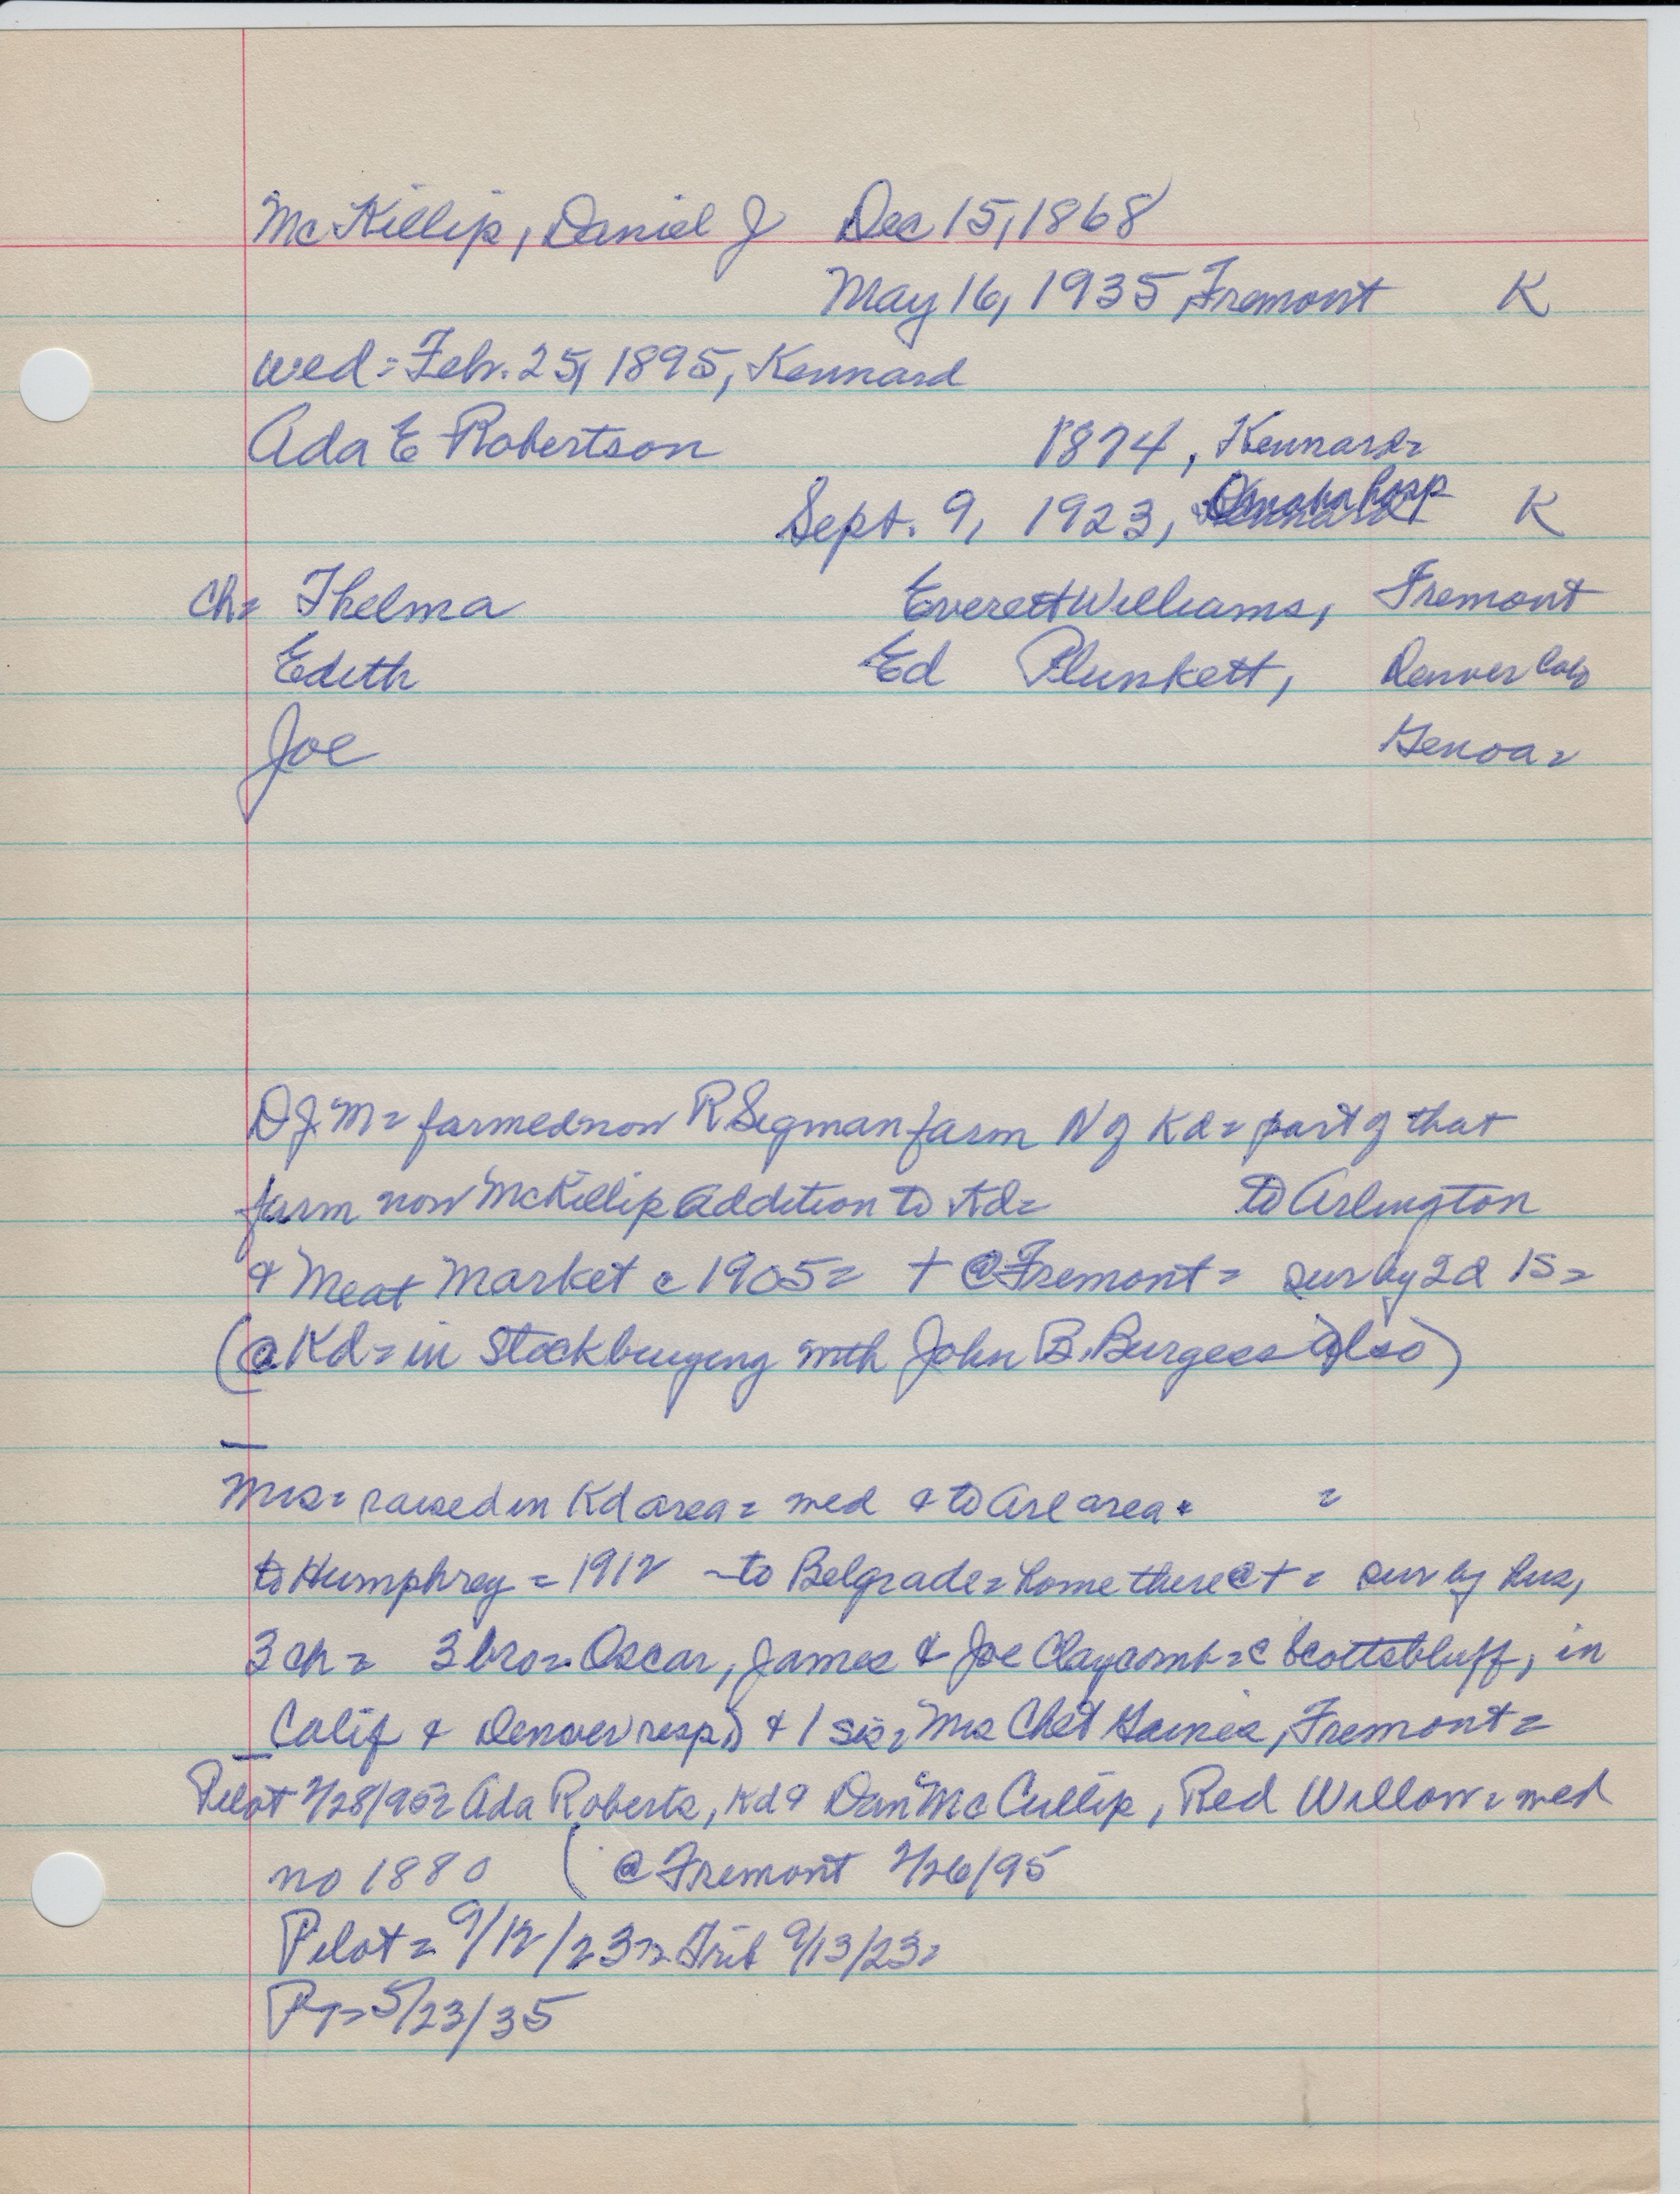 McKillip, Daniel J Dec 15, 1868
May 16, 1935, Fremont K
wed = Feb. 25, 1895, Kennard
Ada E Robertson 1874, Kennard=
Sept. 9, 1923, Omaha hosp K
Ch= Thelma Everett Williams, Fremont
Edith Ed Plunkett, Denver Colo
Joe Genoa=
DJM= farmed now R Segman farm N of Kd= part of that
farm now McKillip Addition to Kd= to Arlington
& Meat Market c 1905= + @ Fremont= sur by 2d 1s=
(@ Kd= in Stockbuying with John B. Burgess also)
Mrs= raised in Kd area= wed & to Arl area= =
to Humphrey = 1912 - to Belgrade= home there @ += sur by hus,
3 ch= 3 bro= Oscar, James & Joe Claycomb= @ Scottsbluff, in
Calif & Denver resp) & 1 sis= Mrs Chet Gaines, Fremont=
Pilot 2/28/95= Ada Roberts, Kd & Dan McCullip, Red Willow= wed
no 1880 (@ Fremont 2/26/95
Pilot= 9/12/23= Trib 9/13/23=
PT= 5/23/35